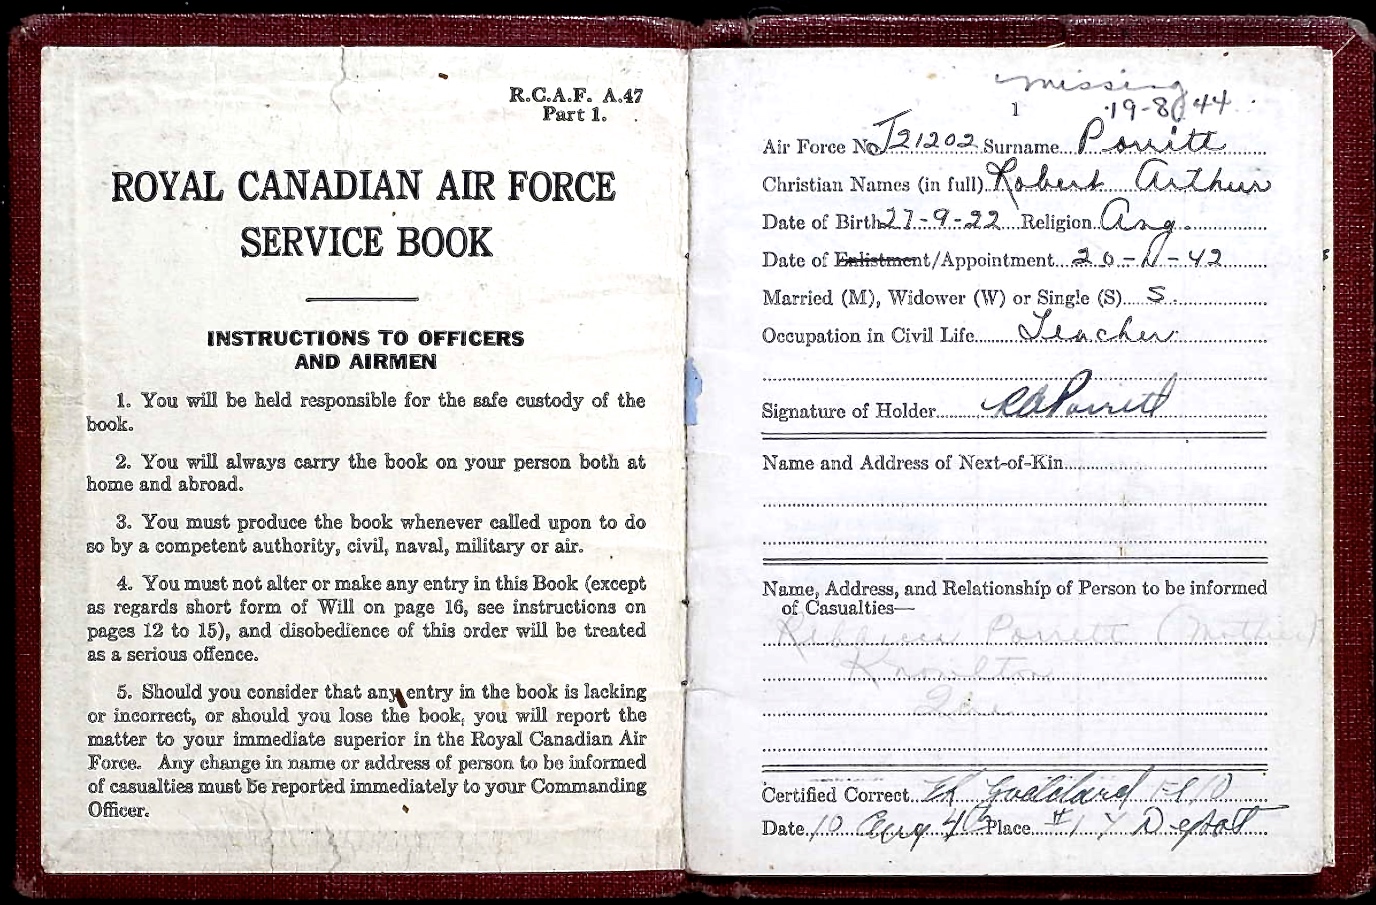 R.C.A.F. A.47
Part 1.
ROYAL CANADIAN AIR FORCE
SERVICE BOOK
INSTRUCTIONS TO OFFICERS
AND AIRMEN
1. You will be held responsible for the safe custody of the
book.
2. You will always carry the book on your person both at
home and abroad.
3. You must produce the book whenever called upon to do
so by a competent authority, civil, naval, military or air.
4. You must not alter or make any entry in this Book (except
as regards short form of Will on page 16, see instructions on
pages 12 to 15), and disobedience of this order will be treated
as a serious offence.
5. Should you consider that any entry in the book is lacking
or incorrect, or should you lose the book, you will report the
matter to your immediate superior in the Royal Canadian Air
Force. Any change in name or address of person to be informed
of casualties must be reported immediately to your Commanding
Officer.
missing
1 19-8-44
Air Force No. J21202 Surname Porritt
Christian Names (in full) Robert Arthur
Date of Birth 27-9-22 Religion Ang.
Date of Enlistment/Appointment 20-11-42
Married (M), Widower (W) or Single (S) S.
Occupation in Civil Life Teacher
Signature of Holder RAPorritt
Name and Address of Next-of-Kin
Name, Address, and Relationship of Person to be informed
of Casualties—
Rebecca Porritt (Mother)
Knowlton
Que.
Certified Correct Goddard F/O
Date 10 Aug 43 Place #1 Y Depot